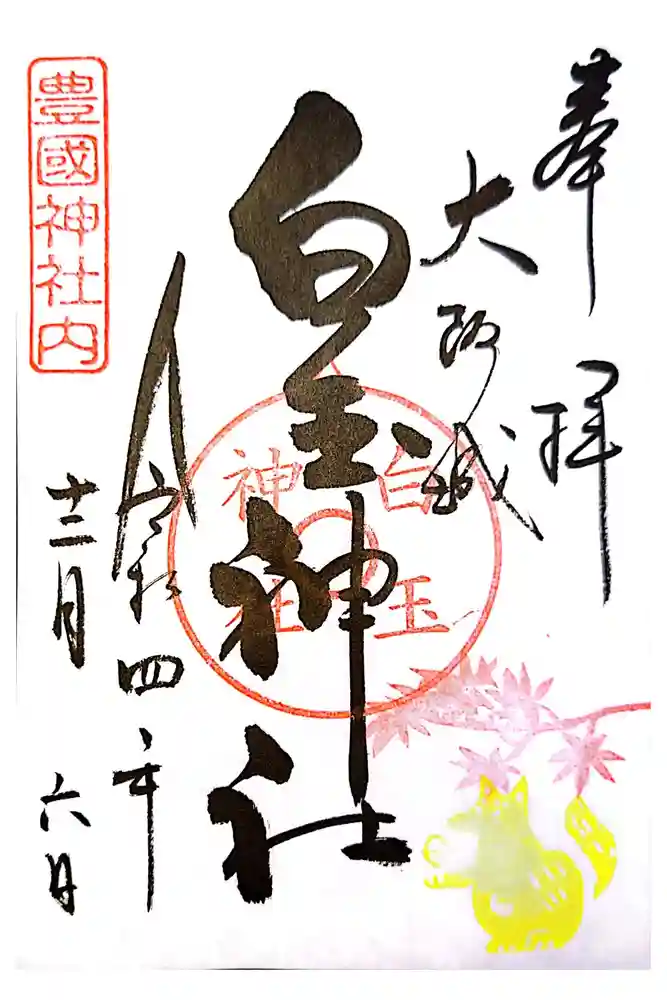 奉拝
大阪城
白玉神社
白玉
神社
令和四年
十二月 六日
豊國神社内